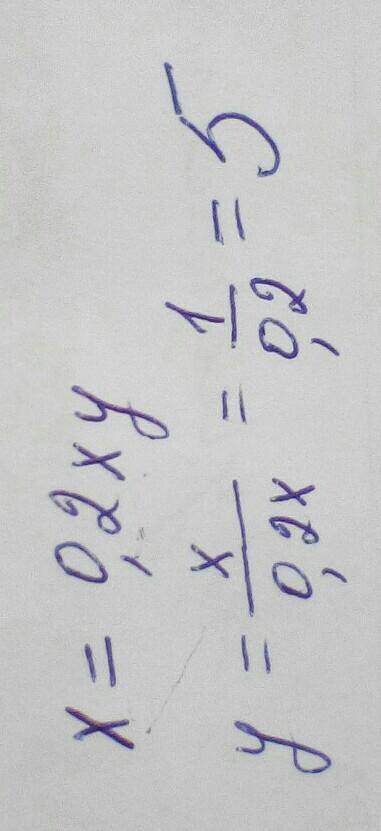 x = 0,2xy
y = x/0,2x = 1/0,2 = 5